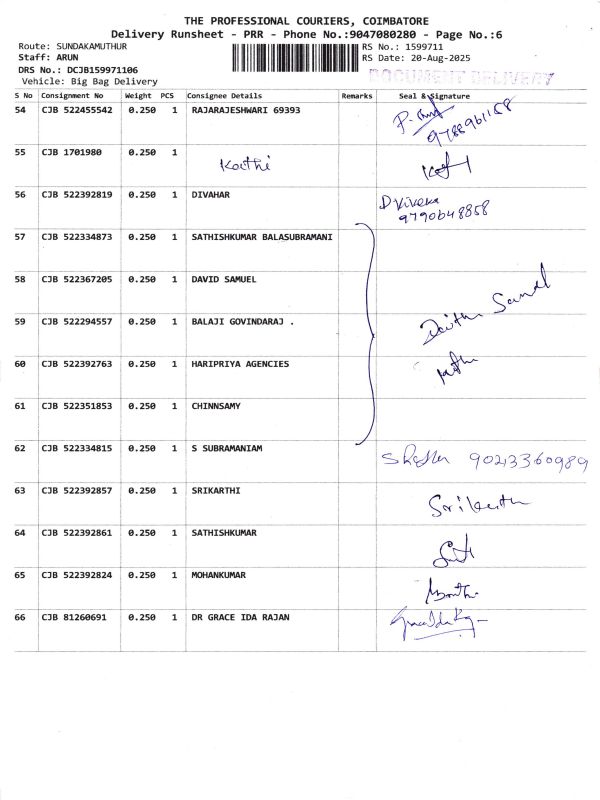 THE PROFESSIONAL COURIERS, COIMBATORE
Delivery Runsheet - PRR - Phone No.:9047080280 - Page No.:6
Route: SUNDAKAMUTHUR RS No.: 1599711
Staff: ARUN RS Date: 20-Aug-2025
DRS No.: DCJB159971106
Vehicle: Big Bag Delivery
DOCUMENT DELIVERY
S No Consignment No Weight PCS Consignee Details Remarks Seal & Signature
54 CJB 522455542 0.250 1 RAJARAJESHWARI 69393
9788961158
55 CJB 1701980 0.250 1
Karthi
56 CJB 522392819 0.250 1 DIVAHAR
9790648858
57 CJB 522334873 0.250 1 SATHISHKUMAR BALASUBRAMANI
58 CJB 522367205 0.250 1 DAVID SAMUEL
59 CJB 522294557 0.250 1 BALAJI GOVINDARAJ .
60 CJB 522392763 0.250 1 HARIPRIYA AGENCIES
61 CJB 522351853 0.250 1 CHINNSAMY
62 CJB 522334815 0.250 1 S SUBRAMANIAM
63 CJB 522392857 0.250 1 SRIKARTHI
64 CJB 522392861 0.250 1 SATHISHKUMAR
65 CJB 522392824 0.250 1 MOHANKUMAR
66 CJB 81260691 0.250 1 DR GRACE IDA RAJAN